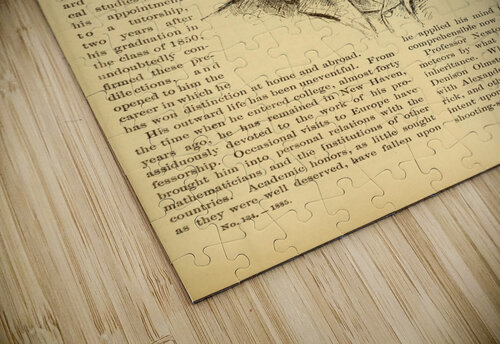 ard
cal studies
his appointment
to a tutorship,
two years after
his graduation in
the class of 1850,
undoubtedly con-
firmed these pre-
dilections, and
opened to him the
career in which he
has won distinction at home and abroad.
His outward life has been uneventful. From
the time when he entered college, almost forty
years ago, he has remained in New Haven,
assiduously devoted to the work of his pro-
fessorship. Occasional visits to Europe have
brought him into personal relations with the
mathematicians and the Institutions of other
countries. Academic honors, as little sought
as they were well deserved, have fallen upon
No. 124. — 1885.
he applied his mind
comprehensible non
Professor Newt
meteors by what
inheritance.
Denison Olms
with Alexan
ick, and o
dent upon
shooting